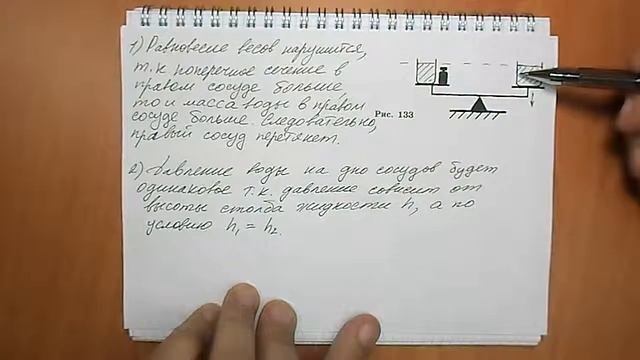 1) Равновесие весов нарушится,
т.к поперечное сечение в
правом сосуде больше,
то и масса воды в правом
сосуде больше. Следовательно,
правый сосуд перетянет.
Рис. 133
2) Давление воды на дно сосудов будет
одинаковое т.к. давление зависит от
высоты столба жидкости h, а по
условию h₁ = h₂.